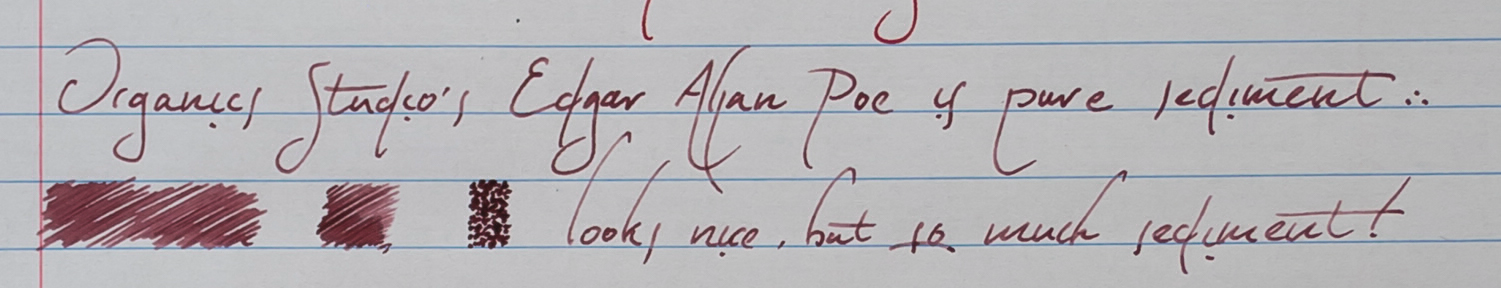 Organics Studio's Edgar Allan Poe is pure sediment ∴
looks nice, but so much sediment!